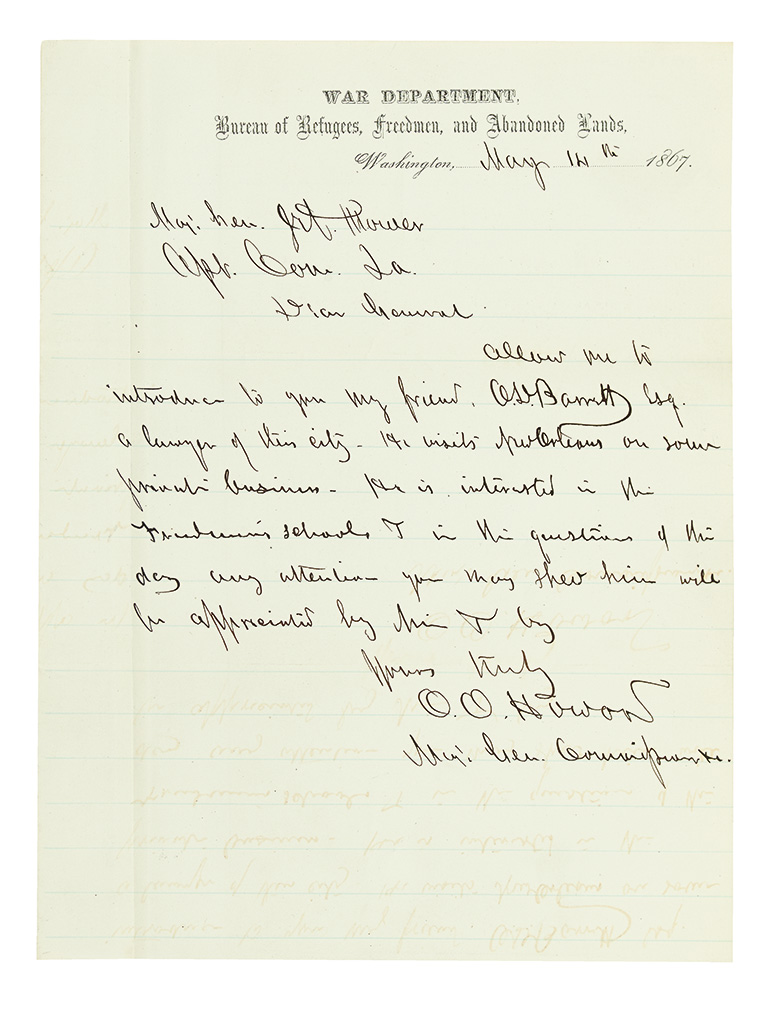 WAR DEPARTMENT,
Bureau of Refugees, Freedmen, and Abandoned Lands,
Washington, May 14th 1867.
Maj. Gen. J. A. Mower
Asst. Com. La.
Dear General
Allow me to
introduce to you my friend, O.D. Barrett Esq.
a lawyer of this city - He visits New Orleans on some
private business - He is interested in the
Freedmen's schools & in the questions of the
day any attention you may shew him will
be appreciated by him & by
Yours truly
O. O. Howard
Maj. Gen. Commissioner.